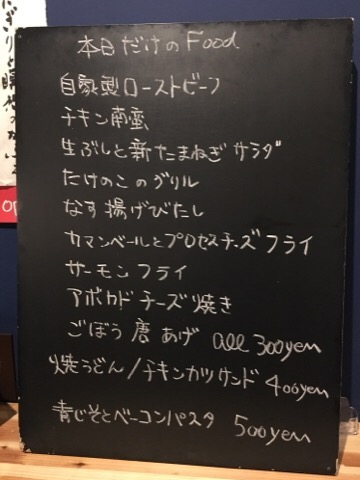 本日だけのFood
自家製ローストビーフ
チキン南蛮
生ぶしと新たまねぎサラダ
たけのこのグリル
なす揚げびたし
カマンベールとプロセスチーズフライ
サーモンフライ
アボカドチーズ焼き
ごぼう唐あげ all 300yen
焼うどん/チキンカツサンド 400yen
青じそとベーコンパスタ 500yen